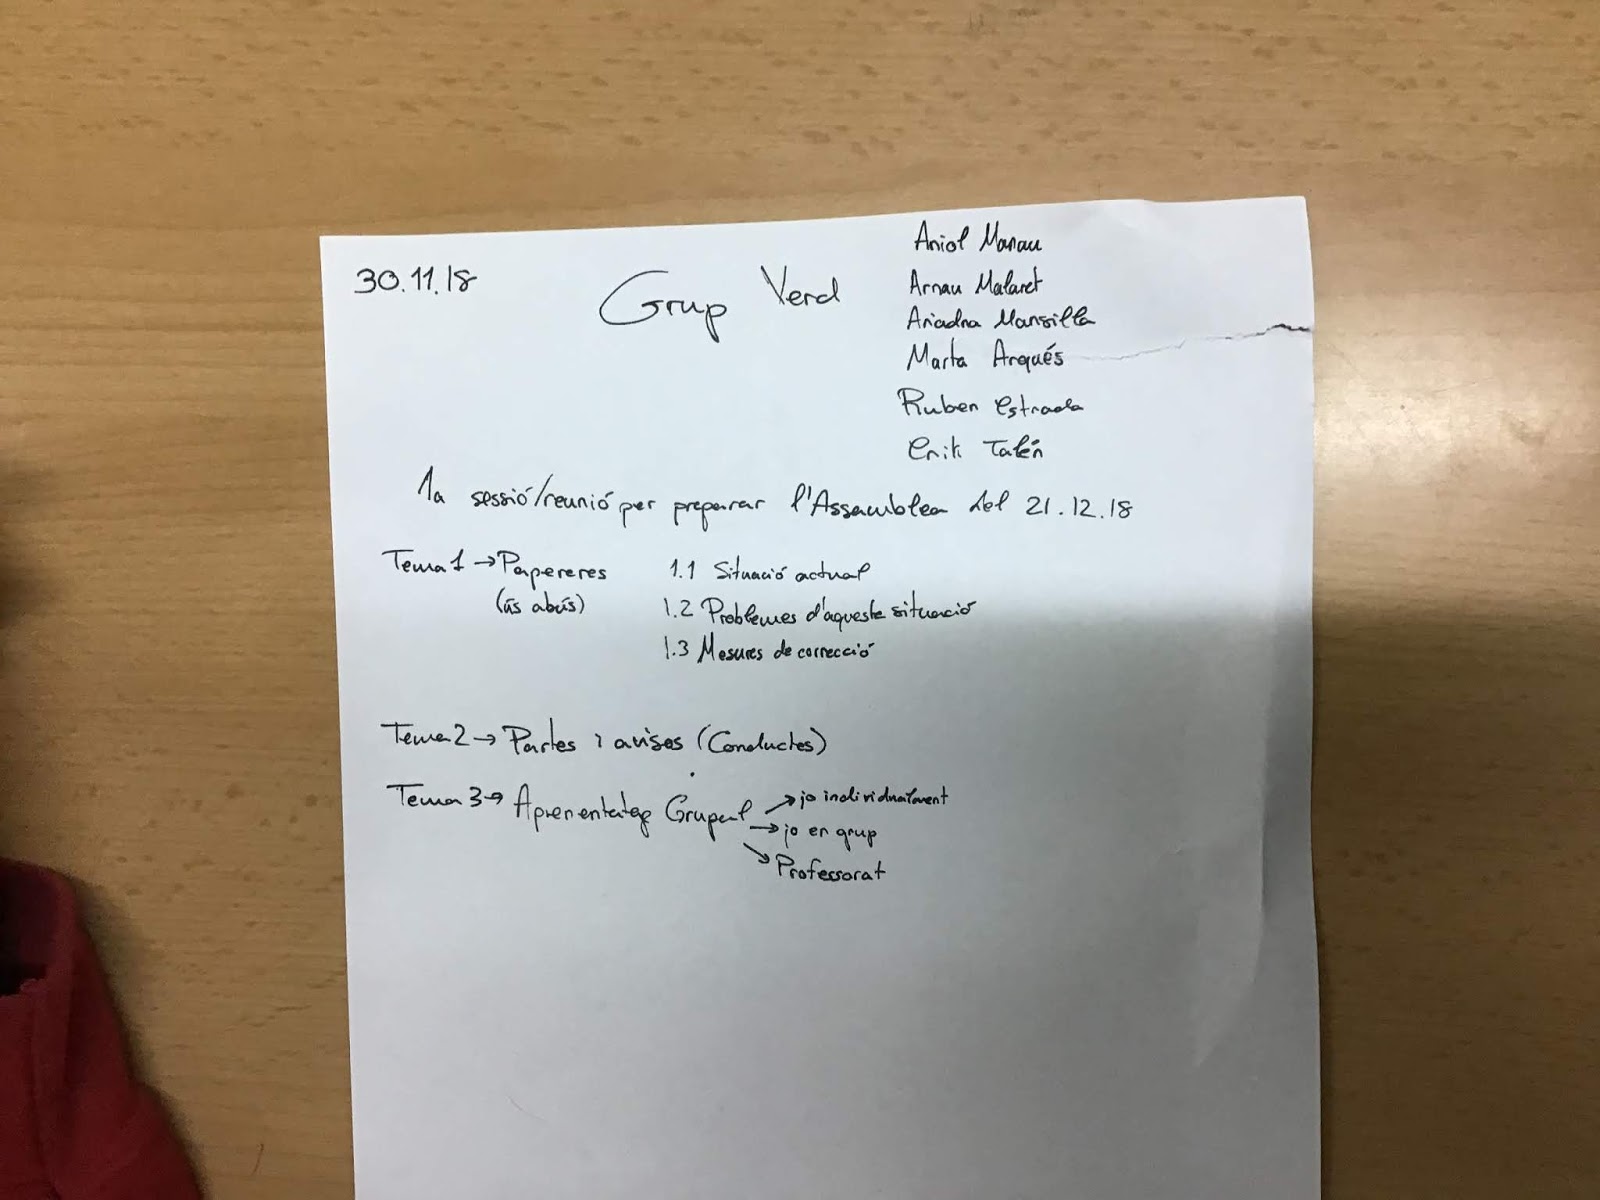 30.11.18
Grup Verd
Aniol Manau
Arnau Malaret
Ariadna Mansilla
Marta Arqués
Ruben Estrada
Erik Talén
1a sessió/reunió per preparar l'Assamblea del 21.12.18
Tema 1 → Papereres
(ús abús)
1.1 Situació actual
1.2 Problemes d'aqueste situació
1.3 Mesures de correcció
Tema 2 → Partes i avisos (Conductes)
Tema 3 → Aprenentatge Grupal
→ jo individualment
→ jo en grup
→ Professorat